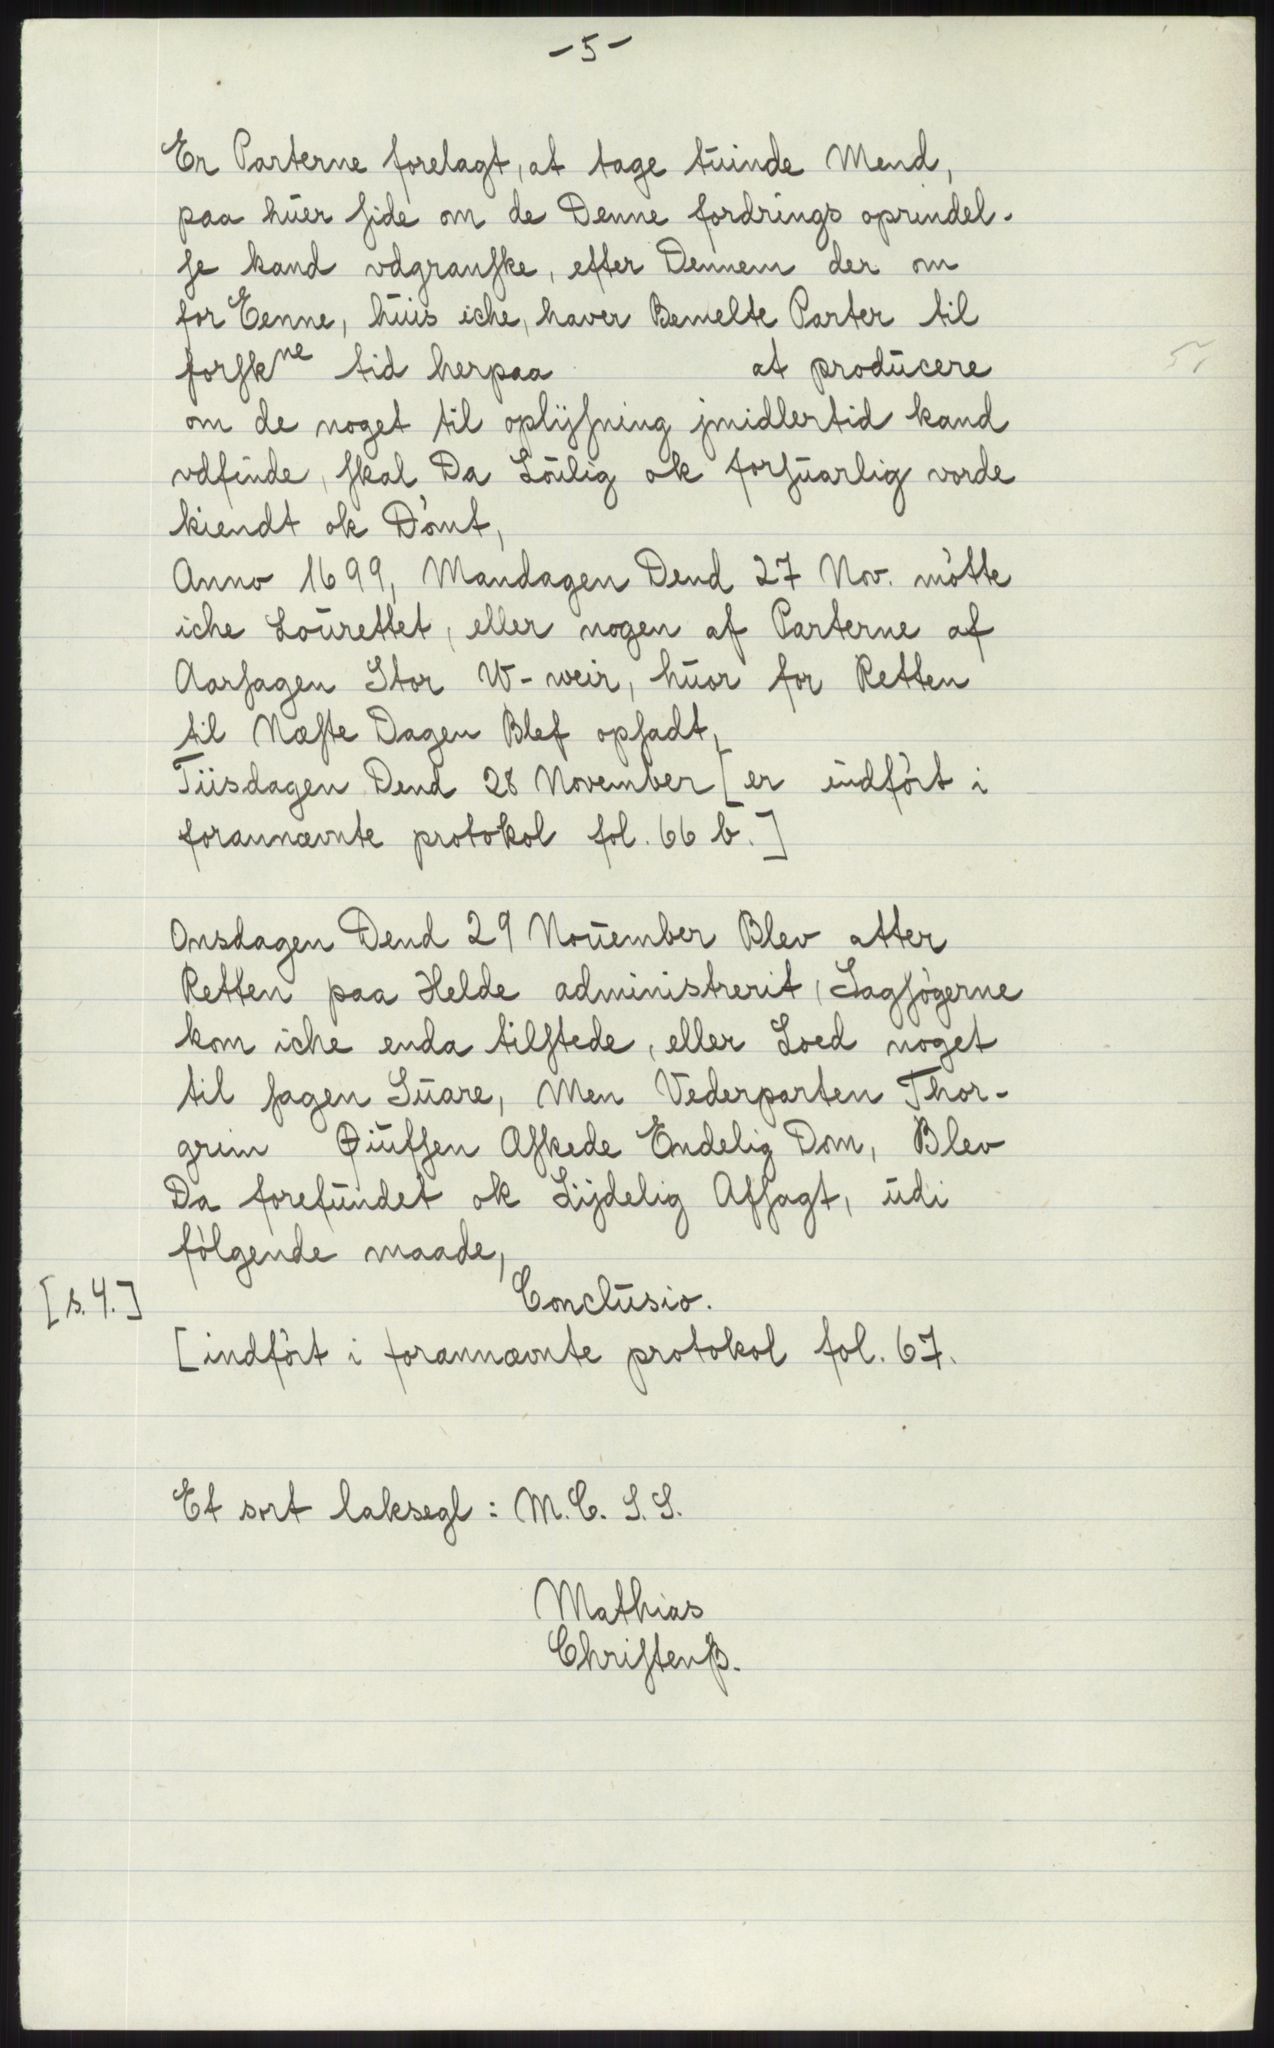 -5-
Er Parterne forelagt, at tage tuinde Mend,
paa huer side om de Denne fordrings oprindel-
se kand vdgranske, efter Dennem der om
for Eenne, huis iche, haver Bemelte Parter til
forskne tid herpaa at producere
om de noget til oplÿsning jmidlertid kand
vdfinde, skal Da Loulig ok forsuarlig vorde
kiendt ok Dømt,
Anno 1699, Mandagen Dend 27 Nov. møtte
iche Lourettet, eller nogen af Parterne af
Aarsagen Stor W-weir, huor for Retten
til Næste Dagen Blef opsadt,
Tiisdagen Dend 28 November [er indført i
forannævnte protokol fol. 66 b.]
Onsdagen Dend 29 Nouember Blev atter
Retten paa Helde administrerit, Sagsøgerne
kom iche enda tilstede, eller Loed noget
til sagen Suare, Men Vederparten Thor-
grim Øiufsen Askede Endelig Dom, Blev
Da forefundet ok Lijdelig Afsagt, udi
følgende maade,
[s. 4.] Conclusio.
[indført i forannævnte protokol fol. 67.
Et sort laksegl: M. C. S. S.
Mathias
Christenß.